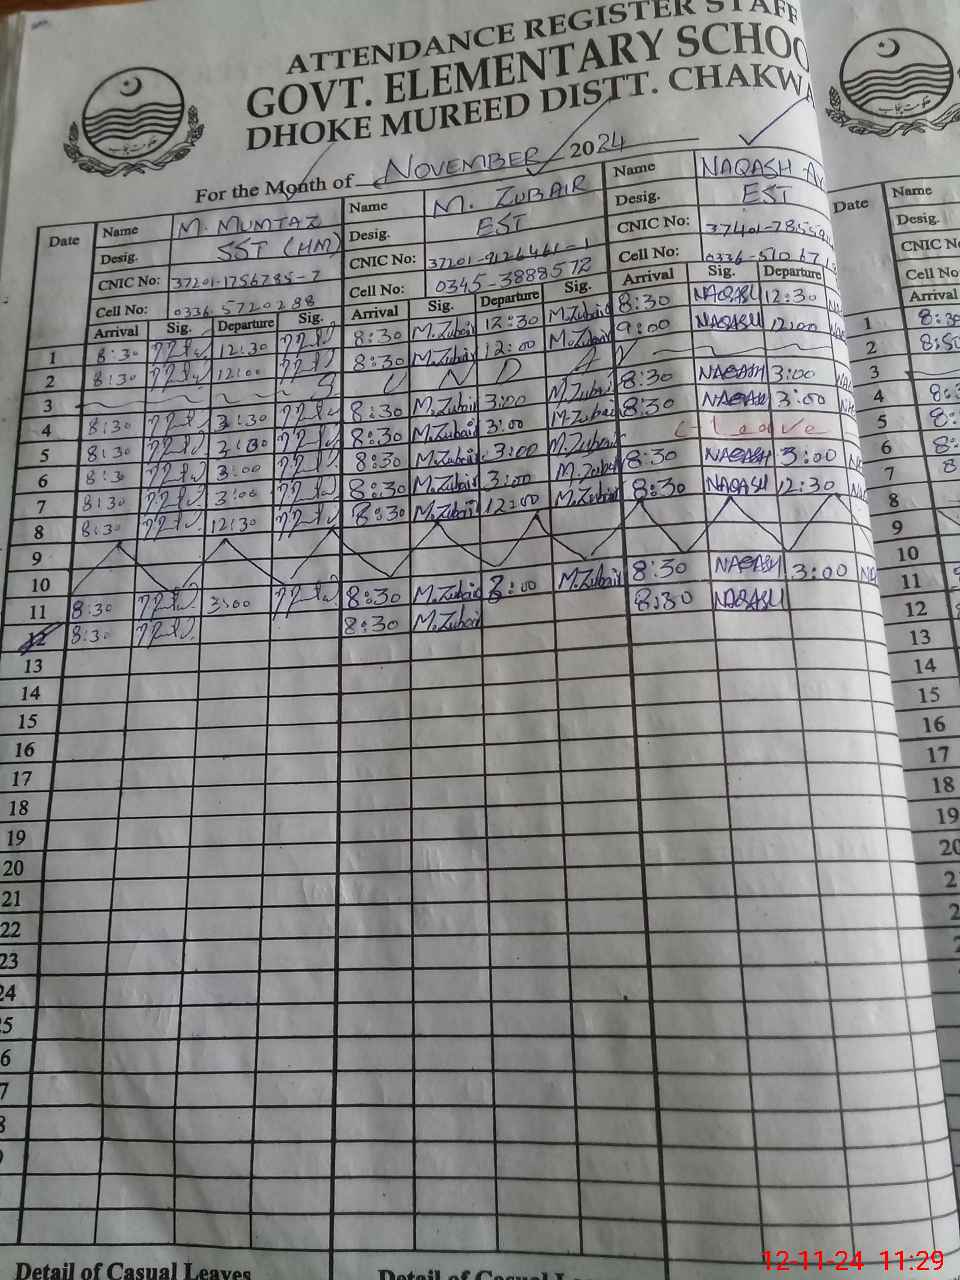 ATTENDANCE REGISTER STAFF
GOVT. ELEMENTARY SCHOO
DHOKE MUREED DISTT. CHAKWA
For the Month of NOVEMBER 2024
Date Name M. MUMTAZ Name M. ZUBAIR Name NAQASH
Desig. SST (HM) Desig. EST Desig. EST
CNIC No: 37201-1756785-7 CNIC No: CNIC No:
Cell No: 0336 5720288 Cell No: 0345-3888572 Cell No:
Arrival Sig. Departure Sig. Arrival Sig. Departure Sig. Arrival Sig. Departure
1 8:30 12:30 8:30 M.Zubair 12:30 M.Zubair 8:30 NAQASH 12:30
2 8:30 12:00 8:30 M.Zubair 12:00 M.Zubair 9:00 NAQASH 12:00
3 S U N D A
4 8:30 3:30 8:30 M.Zubair 3:00 M.Zubair 8:30 NAQASH 3:00
5 8:30 3:30 8:30 M.Zubair 3:00 M.Zubair 8:30 NAQASH 3:00
6 8:30 3:00 8:30 M.Zubair 3:00 M.Zubair C-Leave
7 8:30 3:00 8:30 M.Zubair 3:00 M.Zubair 8:30 NAQASH 3:00
8 8:30 12:30 8:30 M.Zubair 12:00 M.Zubair 8:30 NAQASH 12:30
9
10
11 8:30 3:00 8:30 M.Zubair 3:00 M.Zubair 8:30 NAQASH 3:00
12 8:30 8:30 M.Zubair 8:30 NAQASH
13
14
15
16
17
18
19
20
21
22
23
24
Detail of Casual Leaves Detail of Casual Le
Date Name
Desig.
CNIC N
Cell No
Arrival
1 8:30
2 8:50
3
4
5
6
7
8
9
10
11
12
13
14
15
16
17
18
19
20
12-11-24 11:29